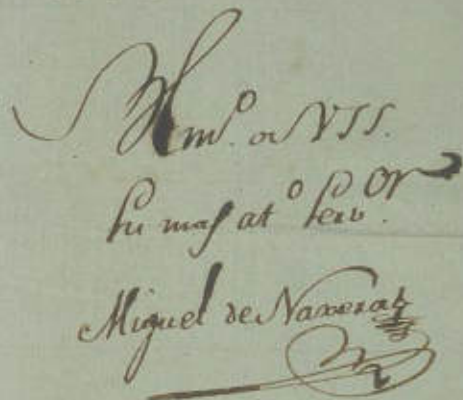 BLm.º de VSS.
su mas at.º serv.or
Miguel de Naveraz